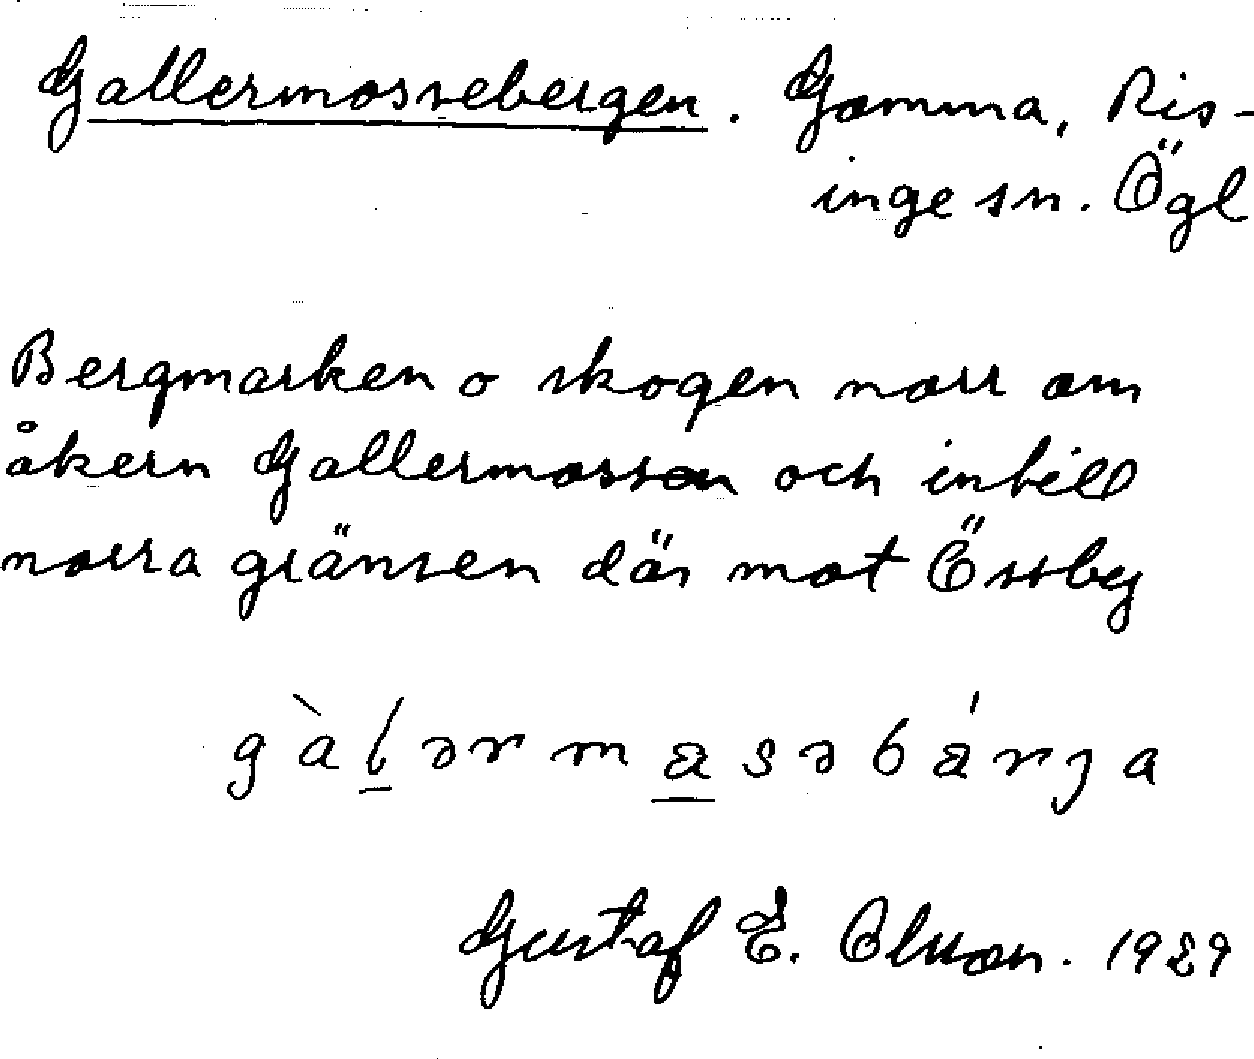 Gallermossebergen. Gomma, Ris-
inge sn. Ögl
Bergmarken o skogen norr om
åkern Gallermossen och intill
norra gränsen där mot Össby
gàlərmasəbárja
Gustaf E. Olsson. 1929